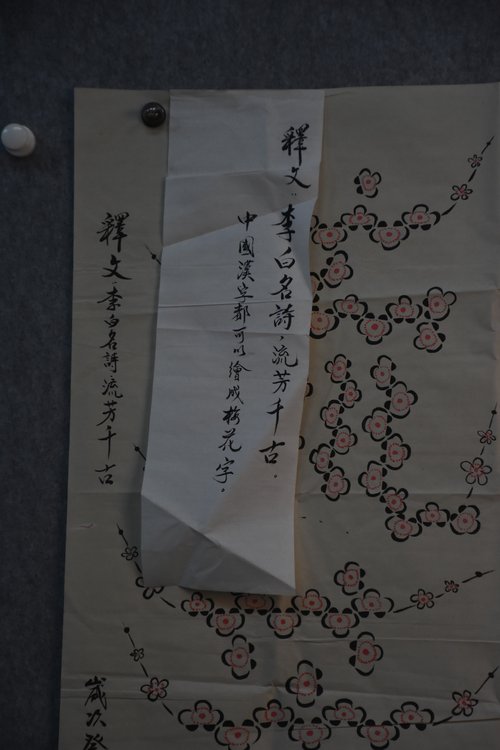 釋文:李白名詩,流芳千古。
中國漢字都可以繪成梅花字。
釋文:李白名詩流芳千古
歲次癸